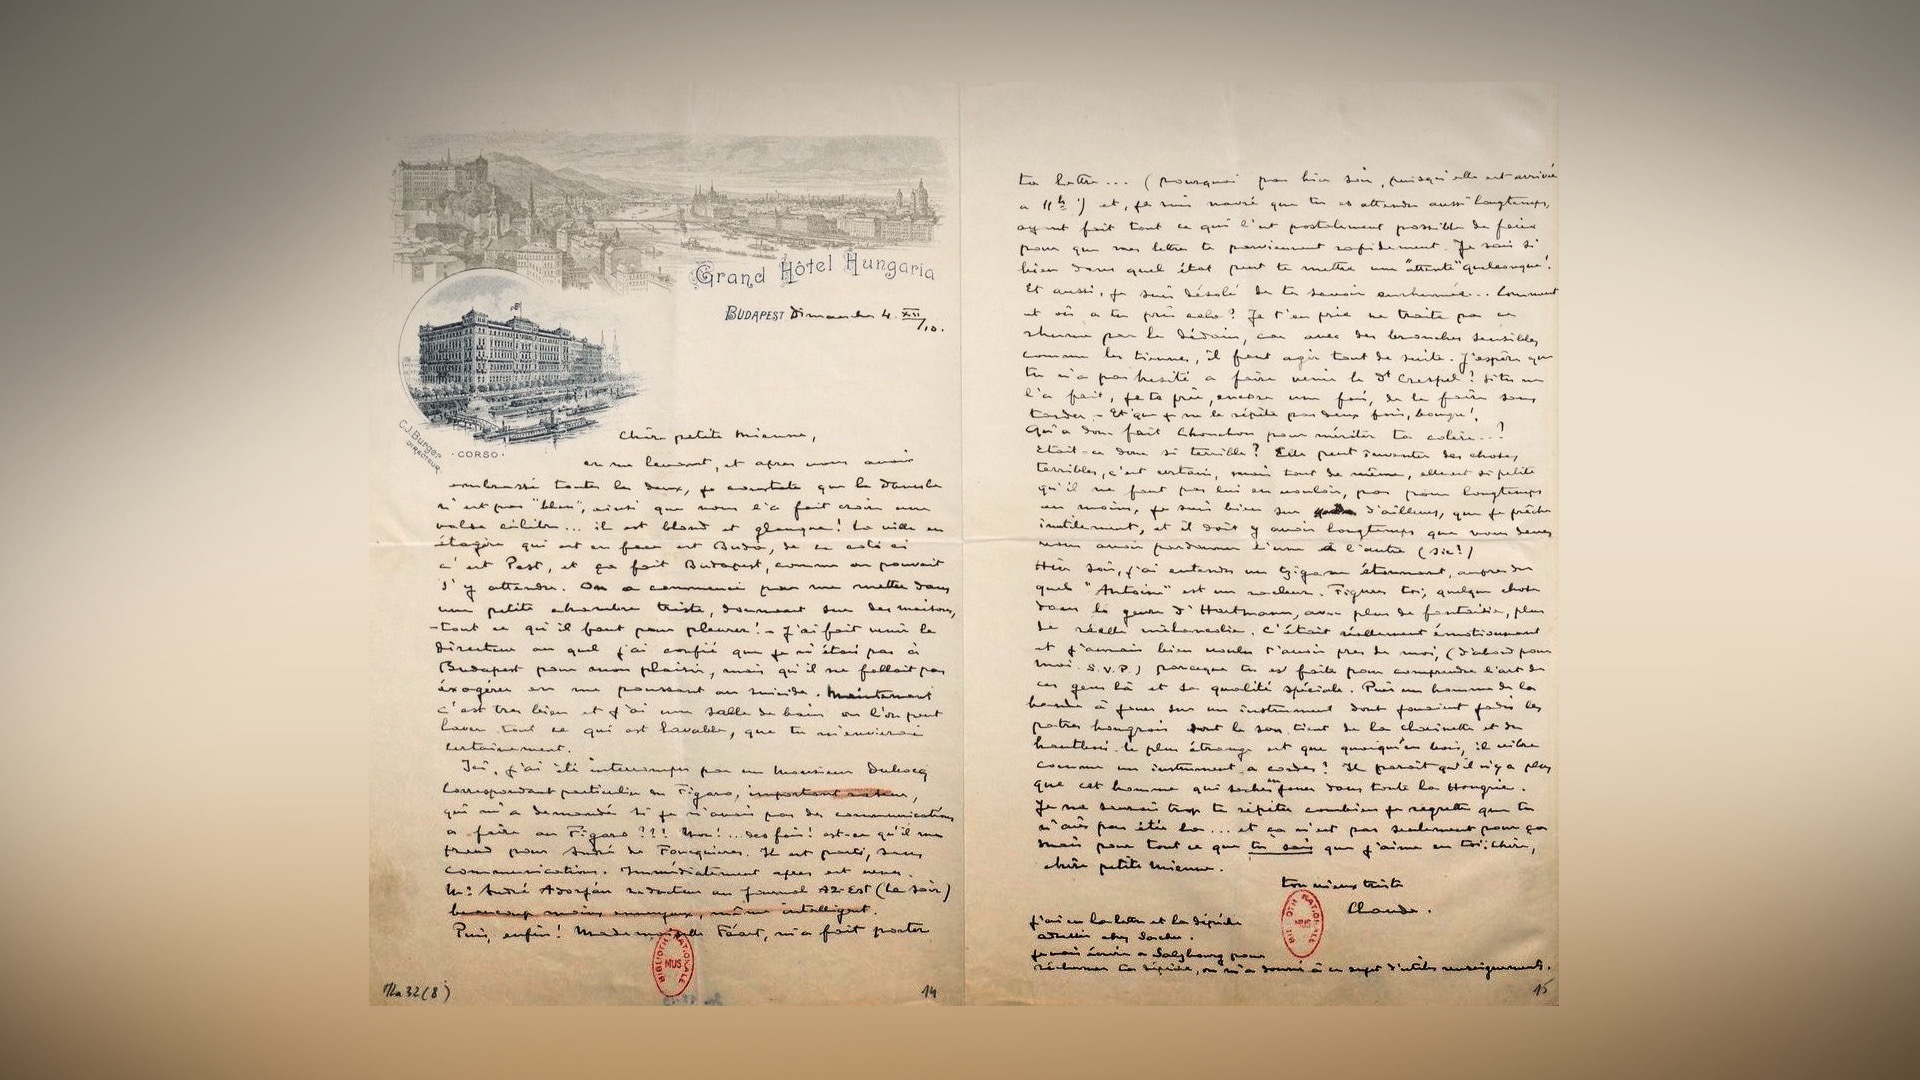 Grand Hôtel Hungaria
BUDAPEST Dimanche 4. XII/10.
C.J. Burger
DIRECTEUR
· CORSO ·
Chère petite Mienne,
en me levant, et après vous avoir
embrassé toutes les deux, je constate que le Danube
n'est pas "bleu", ainsi que nous l'a fait croire une
valse célèbre... il est blond et glauque! La ville en
étagère qui est en face est Buda, de ce côté ci
c'est Pest, et ça fait Budapest, comme on pouvait
s'y attendre. On a commencé par me mettre dans
une petite chambre triste, donnant sur des maisons,
- tout ce qu'il faut pour pleurer! - J'ai fait venir le
directeur au quel j'ai confié que je n'étais pas à
Budapest pour mon plaisir, mais qu'il ne fallait pas
éxagérer en me poussant au suicide. Maintenant
c'est très bien et j'ai une salle de bain où l'on peut
laver tout ce qui est lavable, que tu m'envierais
certainement.
Ici, j'ai été interrompu par un Monsieur
Correspondant particulier du Figaro, important raseur,
qui m'a demandé si je n'avais pas des communications
à faire au Figaro ?!! Non!.. des fois! est-ce qu'il me
prend pour André de Fouquières. Il est parti, sans
communications. Immédiatement après est venu
Mr: André Adorján rédacteur au journal AZ-EST (Le Soir)
beaucoup moins ennuyeux, même intelligent.
Puis, enfin! Mademoiselle Féart, m'a fait porter
BIBLIOTH. NATIONALE
MUS
Na 32 (8)
14
ta lettre... (pourquoi pas hier soir, puisqu'elle est arrivée
à 11h?) et, je suis navré que tu aies attendu aussi longtemps,
ayant fait tout ce qu'il est postalement possible de faire
pour que mes lettres te parviennent rapidement. Je sais si
bien dans quel état peut te mettre une "attente" quelconque!
Et aussi, je suis désolé de te savoir enrhumée... Comment
et où a tu pris cela? Je t'en prie ne traite pas ce
rhume par le dédain, car avec des bronches sensibles
comme les tiennes, il faut agir tout de suite. J'espère que
tu n'a pas hésité à faire venir le Dr Crespel? Si tu ne
l'a fait, je te prie, encore une fois, de le faire sans
tarder. - Et que je ne le répète pas deux fois, bougre!
Qu'a donc fait Chouchou pour mériter ta colère...?
Etait-ce donc si terrible? Elle peut inventer des choses
terribles, c'est certain, mais tout de même, elle est si petite
qu'il ne faut pas lui en vouloir, pas pour longtemps
au moins, je suis bien sûr d'ailleurs, que je prêche
inutilement, et il doit y avoir longtemps que vous devez
vous avoir pardonné l'une à l'autre (sic!)
Hier soir, j'ai entendu un tzigane étonnant, auprès du
quel "Antoine" est un racleur. Figure toi, quelque chose
dans le genre d'Hartmann, avec plus de fantaisie, plus
de réelle mélancolie. C'était réellement émotionnant
et j'aurais bien voulu t'avoir près de moi, (d'abord pour
moi. S.V.P.) parce que tu es faite pour comprendre l'art de
ces gens là et sa qualité spéciale. Puis un homme de la
bande a joué sur un instrument dont jouaient jadis les
patres hongrois dont le son tient de la clarinette et du
hautbois. le plus étrange est que quoiqu'en bois, il vibre
comme un instrument à cordes? Il paraît qu'il n'y a plus
que cet homme qui sache en jouer dans toute la Hongrie.
Je ne saurais trop te répéter combien je regrette que tu
n'aies pas été là... et ça n'est pas seulement pour ça
mais pour tout ce que tu sais que j'aime en toi: chère,
chère petite Mienne.
ton vieux triste
Claude.
BIBLIOTH. NATIONALE
MUS
j'ai eu la lettre et la dépêche
je vais écrire à Salzbourg pour
réclamer ta dépêche, on m'a donné à ce sujet d'utiles renseignements.
15